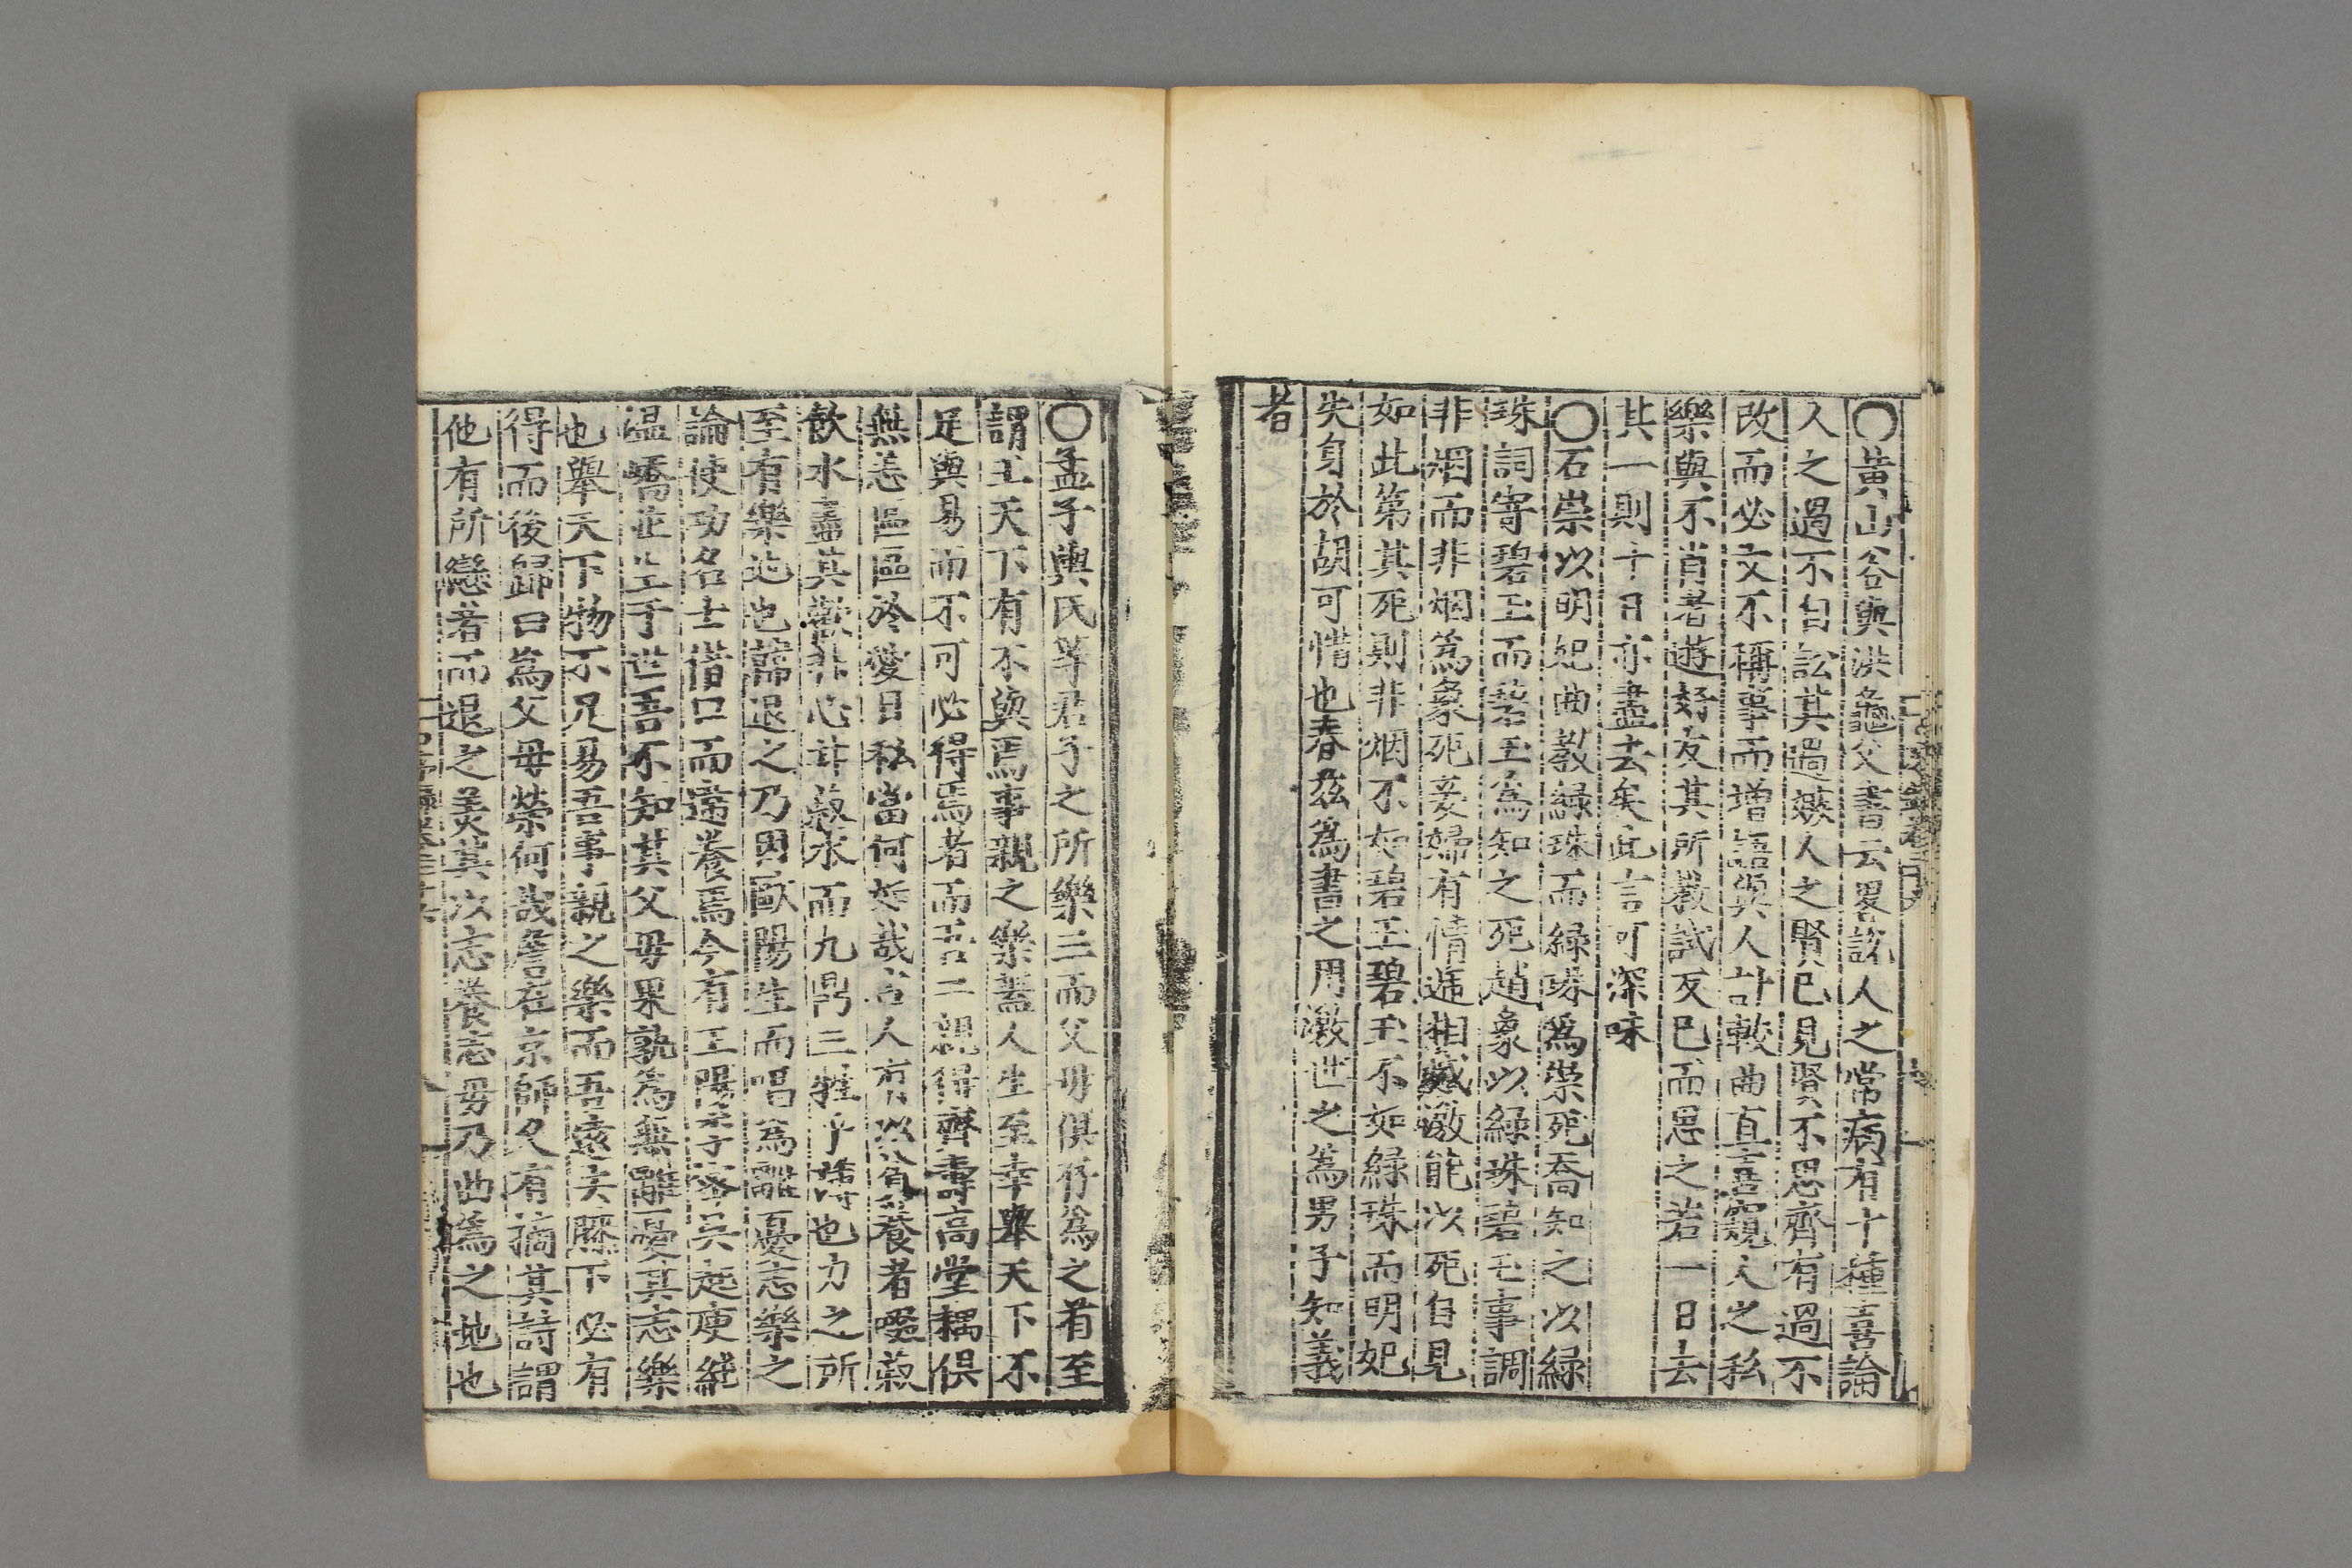 〇黃山谷與洪龜父書云畧說人之常病有十種喜論
人之過不自訟其過嫉人之賢已見賢不思齊有過不
改而必文不稱事而增語與人計較曲直喜窺人之私
樂與不肖者遊好友其所教試反已而思之若一日去
其一則十日亦盡去矣此言可深味
〇石崇以明妃曲教綠珠而綠珠為崇死喬知之以綠
珠詞寄碧玉而碧玉為知之死趙象以綠珠碧玉事調
非烟而非烟為象死妾婦有情遞相感激能以死自見
如此第其死則非烟不如碧玉碧玉不如綠珠而明妃
失身於胡可惜也春茲為書之用激世之為男子知義
者
〇孟子輿氏等君子之所樂三而父母俱存為之首至
謂王天下有不與焉事親之樂蓋人生至幸舉天下不
足與易而不可必得焉者而吾二親得齊壽高堂耦俱
無恙區區於愛日私當何如哉古人有以貧養者啜菽
飲水盡其歡非必謂菽水而九鼎三牲乎薄也力之所
至有樂乎也韓退之乃因歐陽生而唱為離憂志樂之
論使功名士借口而違養焉今有王陽棄子咨吳起更絕
溫嶠並生于世吾不知其父母果孰為無離憂其志樂
也舉天下物不足易吾事親之樂而吾遠夫膝下必有
得而後歸曰為父母榮何哉詹在京師久有摘其詩謂
他有所戀著而退之美其以志養志毋乃曲為之地也